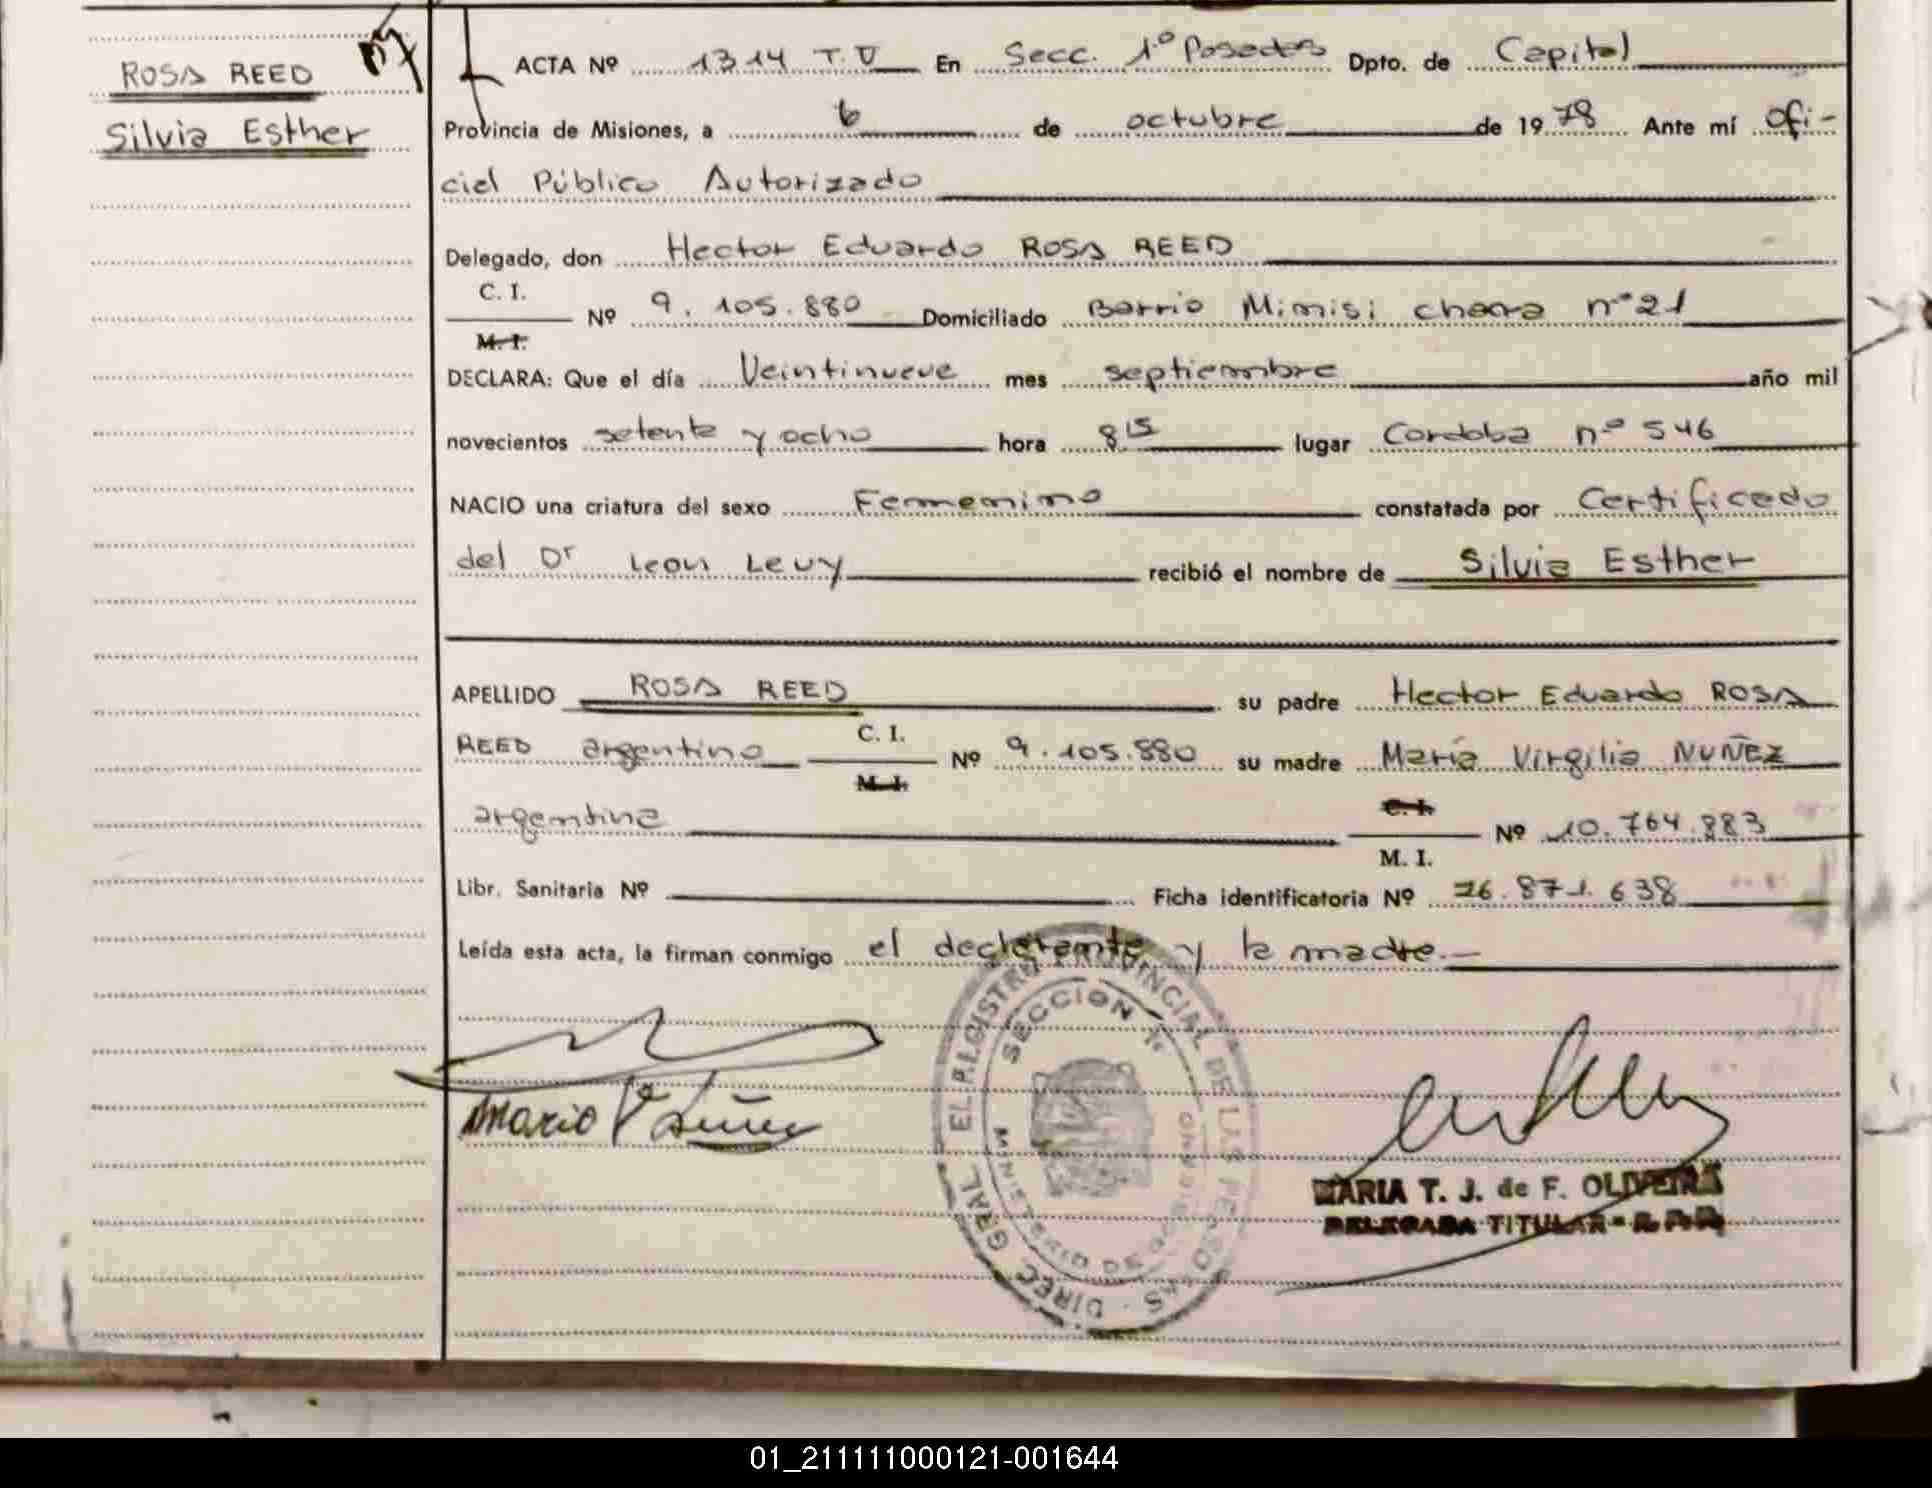 ROSA REED
Silvia Esther
ACTA Nº 1314 T. V En Secc. 1º Posadas Dpto. de Capital
Provincia de Misiones, a 6 de octubre de 1978 Ante mí Ofi-
cial Público Autorizado
Delegado, don Hector Eduardo ROSA REED
C. I.
Nº 9.105.880 Domiciliado Barrio Minisi chacra nº 21
M. I.
DECLARA: Que el día Veintinueve mes septiembre año mil
novecientos setenta y ocho hora 8 15 lugar Cordoba nº 546
NACIO una criatura del sexo Femenino constatada por Certificado
del Dr Leon Levy recibió el nombre de Silvia Esther
APELLIDO ROSA REED su padre Hector Eduardo ROSA
C. I.
REED argentino Nº 9.105.880 su madre María Virgilia NUÑEZ
M. I.
C. I.
argentina Nº 10.764.883
M. I.
Libr. Sanitaria Nº Ficha identificatoria Nº 26.871.638
Leída esta acta, la firman conmigo el declarante y la madre.—
DIREC. GRAL. EL REGISTRO PROVINCIAL DE LAS PERSONAS
SECCION 1º
MINISTERIO DE GOBIERNO
MARIA T. J. de F. OLIVEIRA
DELEGADA TITULAR
01_211111000121-001644